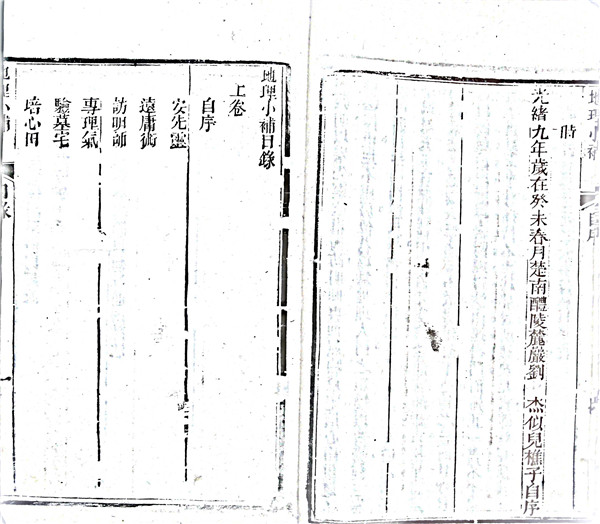 地理小補
自序
時
光緒九年歲在癸未春月楚南醴陵麓巖劉 杰似兒樵子自序
地理小補目錄
上卷
自序
安先靈
遠庸術
訪明師
專理氣
驗墓宅
培心田
地理小補
目錄
一